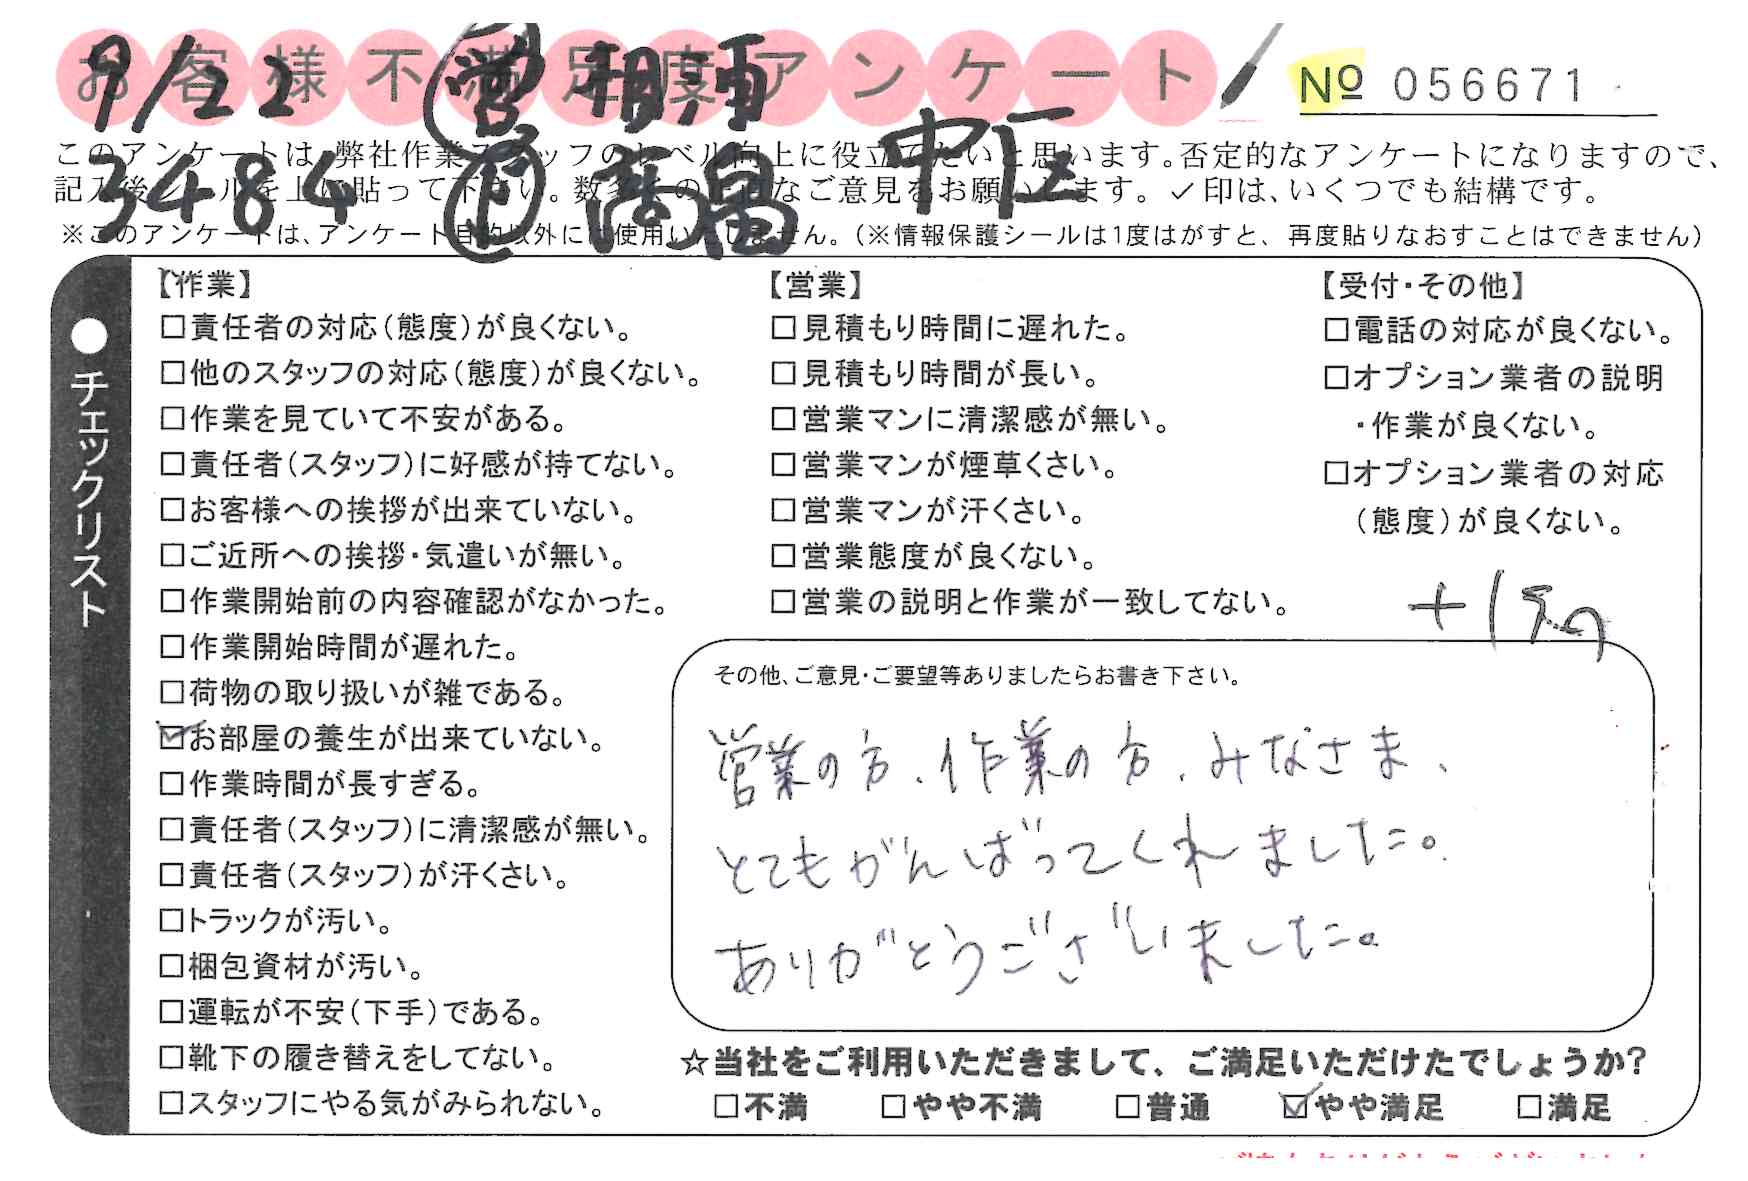 お客様不満足度アンケート
№ 056671
9/22 営
3484 中区
このアンケートは、弊社作業スタッフのレベル向上に役立てたいと思います。否定的なアンケートになりますので、
記入後シールを上に貼って下さい。数多くの正直なご意見をお願いします。✓印は、いくつでも結構です。
※このアンケートは、アンケート目的以外には使用いたしません。（※情報保護シールは1度はがすと、再度貼りなおすことはできません）
●チェックリスト
【作業】
□責任者の対応（態度）が良くない。
□他のスタッフの対応（態度）が良くない。
□作業を見ていて不安がある。
□責任者（スタッフ）に好感が持てない。
□お客様への挨拶が出来ていない。
□ご近所への挨拶・気遣いが無い。
□作業開始前の内容確認がなかった。
□作業開始時間が遅れた。
□荷物の取り扱いが雑である。
☑お部屋の養生が出来ていない。
□作業時間が長すぎる。
□責任者（スタッフ）に清潔感が無い。
□責任者（スタッフ）が汗くさい。
□トラックが汚い。
□梱包資材が汚い。
□運転が不安（下手）である。
□靴下の履き替えをしてない。
□スタッフにやる気がみられない。
【営業】
□見積もり時間に遅れた。
□見積もり時間が長い。
□営業マンに清潔感が無い。
□営業マンが煙草くさい。
□営業マンが汗くさい。
□営業態度が良くない。
□営業の説明と作業が一致してない。
【受付・その他】
□電話の対応が良くない。
□オプション業者の説明
・作業が良くない。
□オプション業者の対応
（態度）が良くない。
その他、ご意見・ご要望等ありましたらお書き下さい。
営業の方、作業の方、みなさま、
とてもがんばってくれました。
ありがとうございました。
☆当社をご利用いただきまして、ご満足いただけたでしょうか?
□不満 □やや不満 □普通 ☑やや満足 □満足